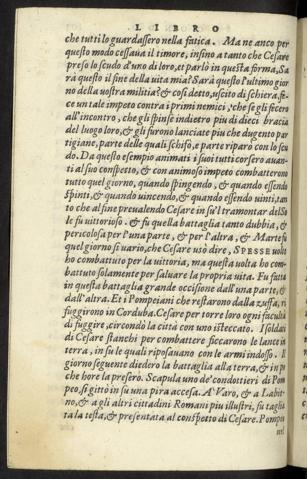 LIBRO
che tutti lo guardassero nella fatica. Ma ne anco per
questo modo cessaua il timore, insino a tanto che Cesare
preso lo scudo d'uno di loro, et parlò in questa forma, Sa
rà questo il fine della uita mia? Sarà questo l'ultimo gior
no della uostra militia? & cosi detto, uscito di schiera, fe-
ce un tale impeto contra i primi nemici, che se gli fecero
all'incontro, che gli spinse indietro piu di dieci braccia
del luogo loro, & gli furono lanciate piu che dugento par
tigiane, parte delle quali schifò, e parte riparò con lo scu
do. Da questo esempio animati i suoi tutti corsero auan-
ti al suo conspetto, & con animoso impeto combatterono
tutto quel giorno, quando spingendo, & quando essendo
spinti, & quando uincendo, & quando essendo uinti, tan
to che al fine preualendo Cesare in su'l tramontar del So
le fu uittorioso. & fu quella battaglia tanto dubbia, &
pericolosa per l'una parte, & per l'altra, & Marte fu
quel giorno si uario, che Cesare usò dire, SPESSE uolte
ho combattuto per la uittoria, ma questa uolta ho com-
battuto solamente per saluare la propria uita. Fu fatta
in questa battaglia grande occisione dall'una parte, &
dall'altra. Et i Pompeiani che restarono dalla zuffa, ri
fuggirono in Corduba. Cesare per torre loro ogni facultà
di fuggire, circondò la città con uno isteccato. I soldati
di Cesare stanchi per combattere ficcarono le lance in
terra, in su le quali riposauano con le armi indosso. Il
giorno seguente diedero la battaglia alla terra, & in po
che hore la presero. Scapula uno de' condottieri di Pom
peo, si gittò in su una pira accesa. A' Varo, & a Labit-
no, & a gli altri cittadini Romani piu illustri, fu taglia
ta la testa, & presentata al conspetto di Cesare. Pompeo